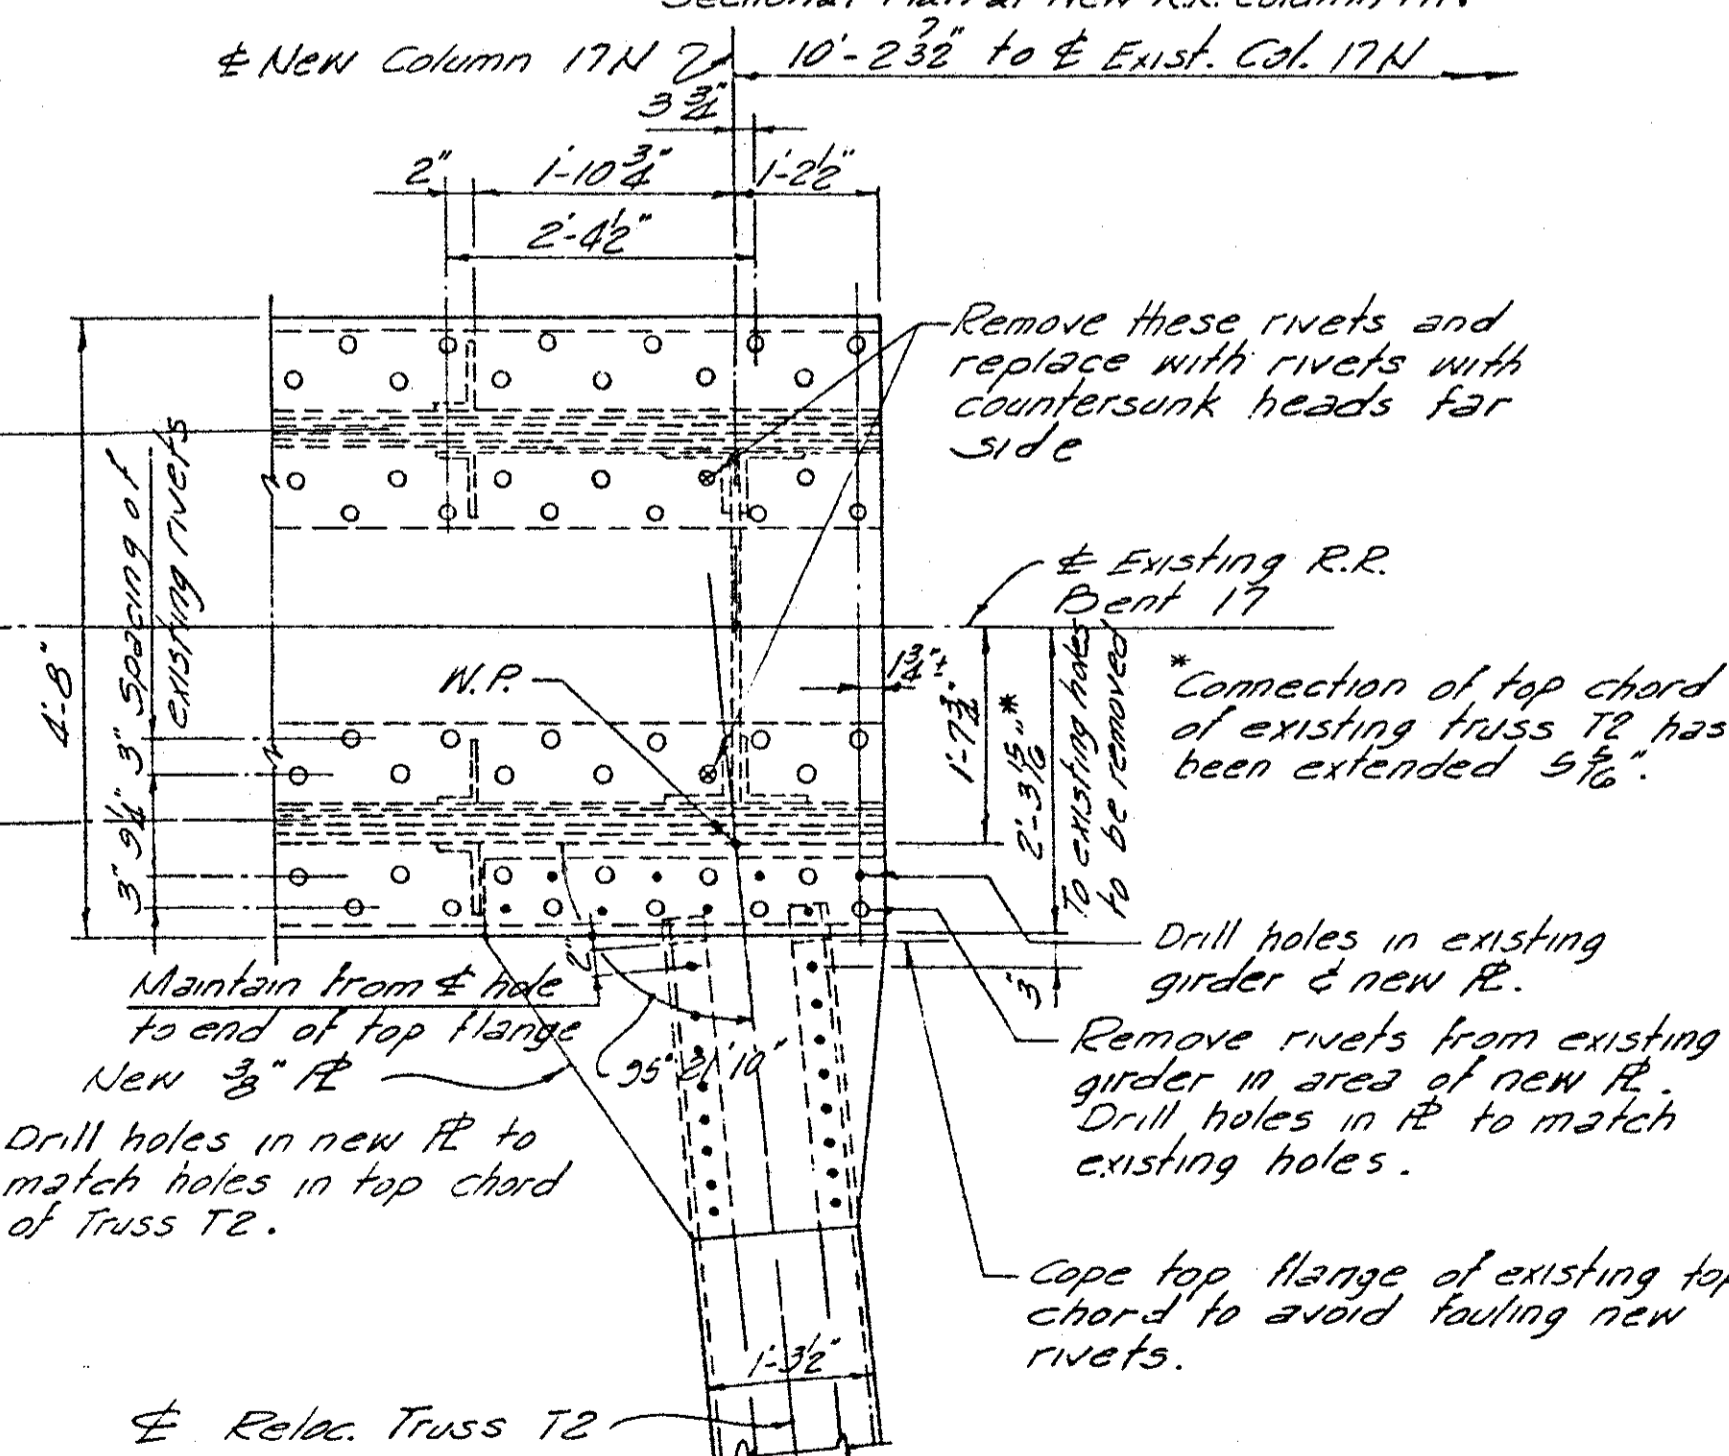 Sectional Plan at New R.R. Column 17N
℄ New Column 17N
10'-2 7/32" to ℄ Exist. Col. 17N
3 3/4"
2"
1'-10 3/4"
1'-2 1/2"
2'-4 1/2"
Remove these rivets and
replace with rivets with
countersunk heads far
side
4'-8"
3" 9 1/4" 3" Spacing of
existing rivets
℄ Existing R.R.
Bent 17
W.P.
1 3/4"±
1'-7 3/4"
2'-3 15/16" *
To existing holes
to be removed
*Connection of top chord
of existing truss T2 has
been extended 5 5/16".
3"
Drill holes in existing
girder & new ℞.
2"
Maintain from ℄ hole
to end of top flange
New 3/8" ℞
95° 21' 10"
Remove rivets from existing
girder in area of new ℞.
Drill holes in ℞ to match
existing holes.
Drill holes in new ℞ to
match holes in top chord
of Truss T2.
Cope top flange of existing top
chord to avoid fouling new
rivets.
1'-3 1/2"
℄ Reloc. Truss T2